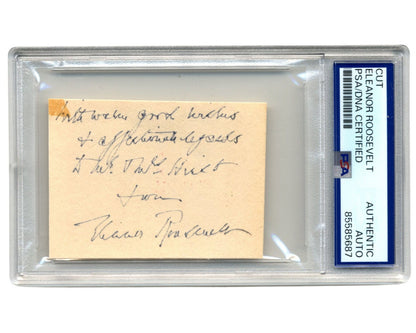 With warm good wishes
& affectionate regards
to Mr. & Mrs.
from
Eleanor Roosevelt
CUT
ELEANOR ROOSEVELT
PSA/DNA CERTIFIED
PSA
AUTHENTIC
AUTO
85585687